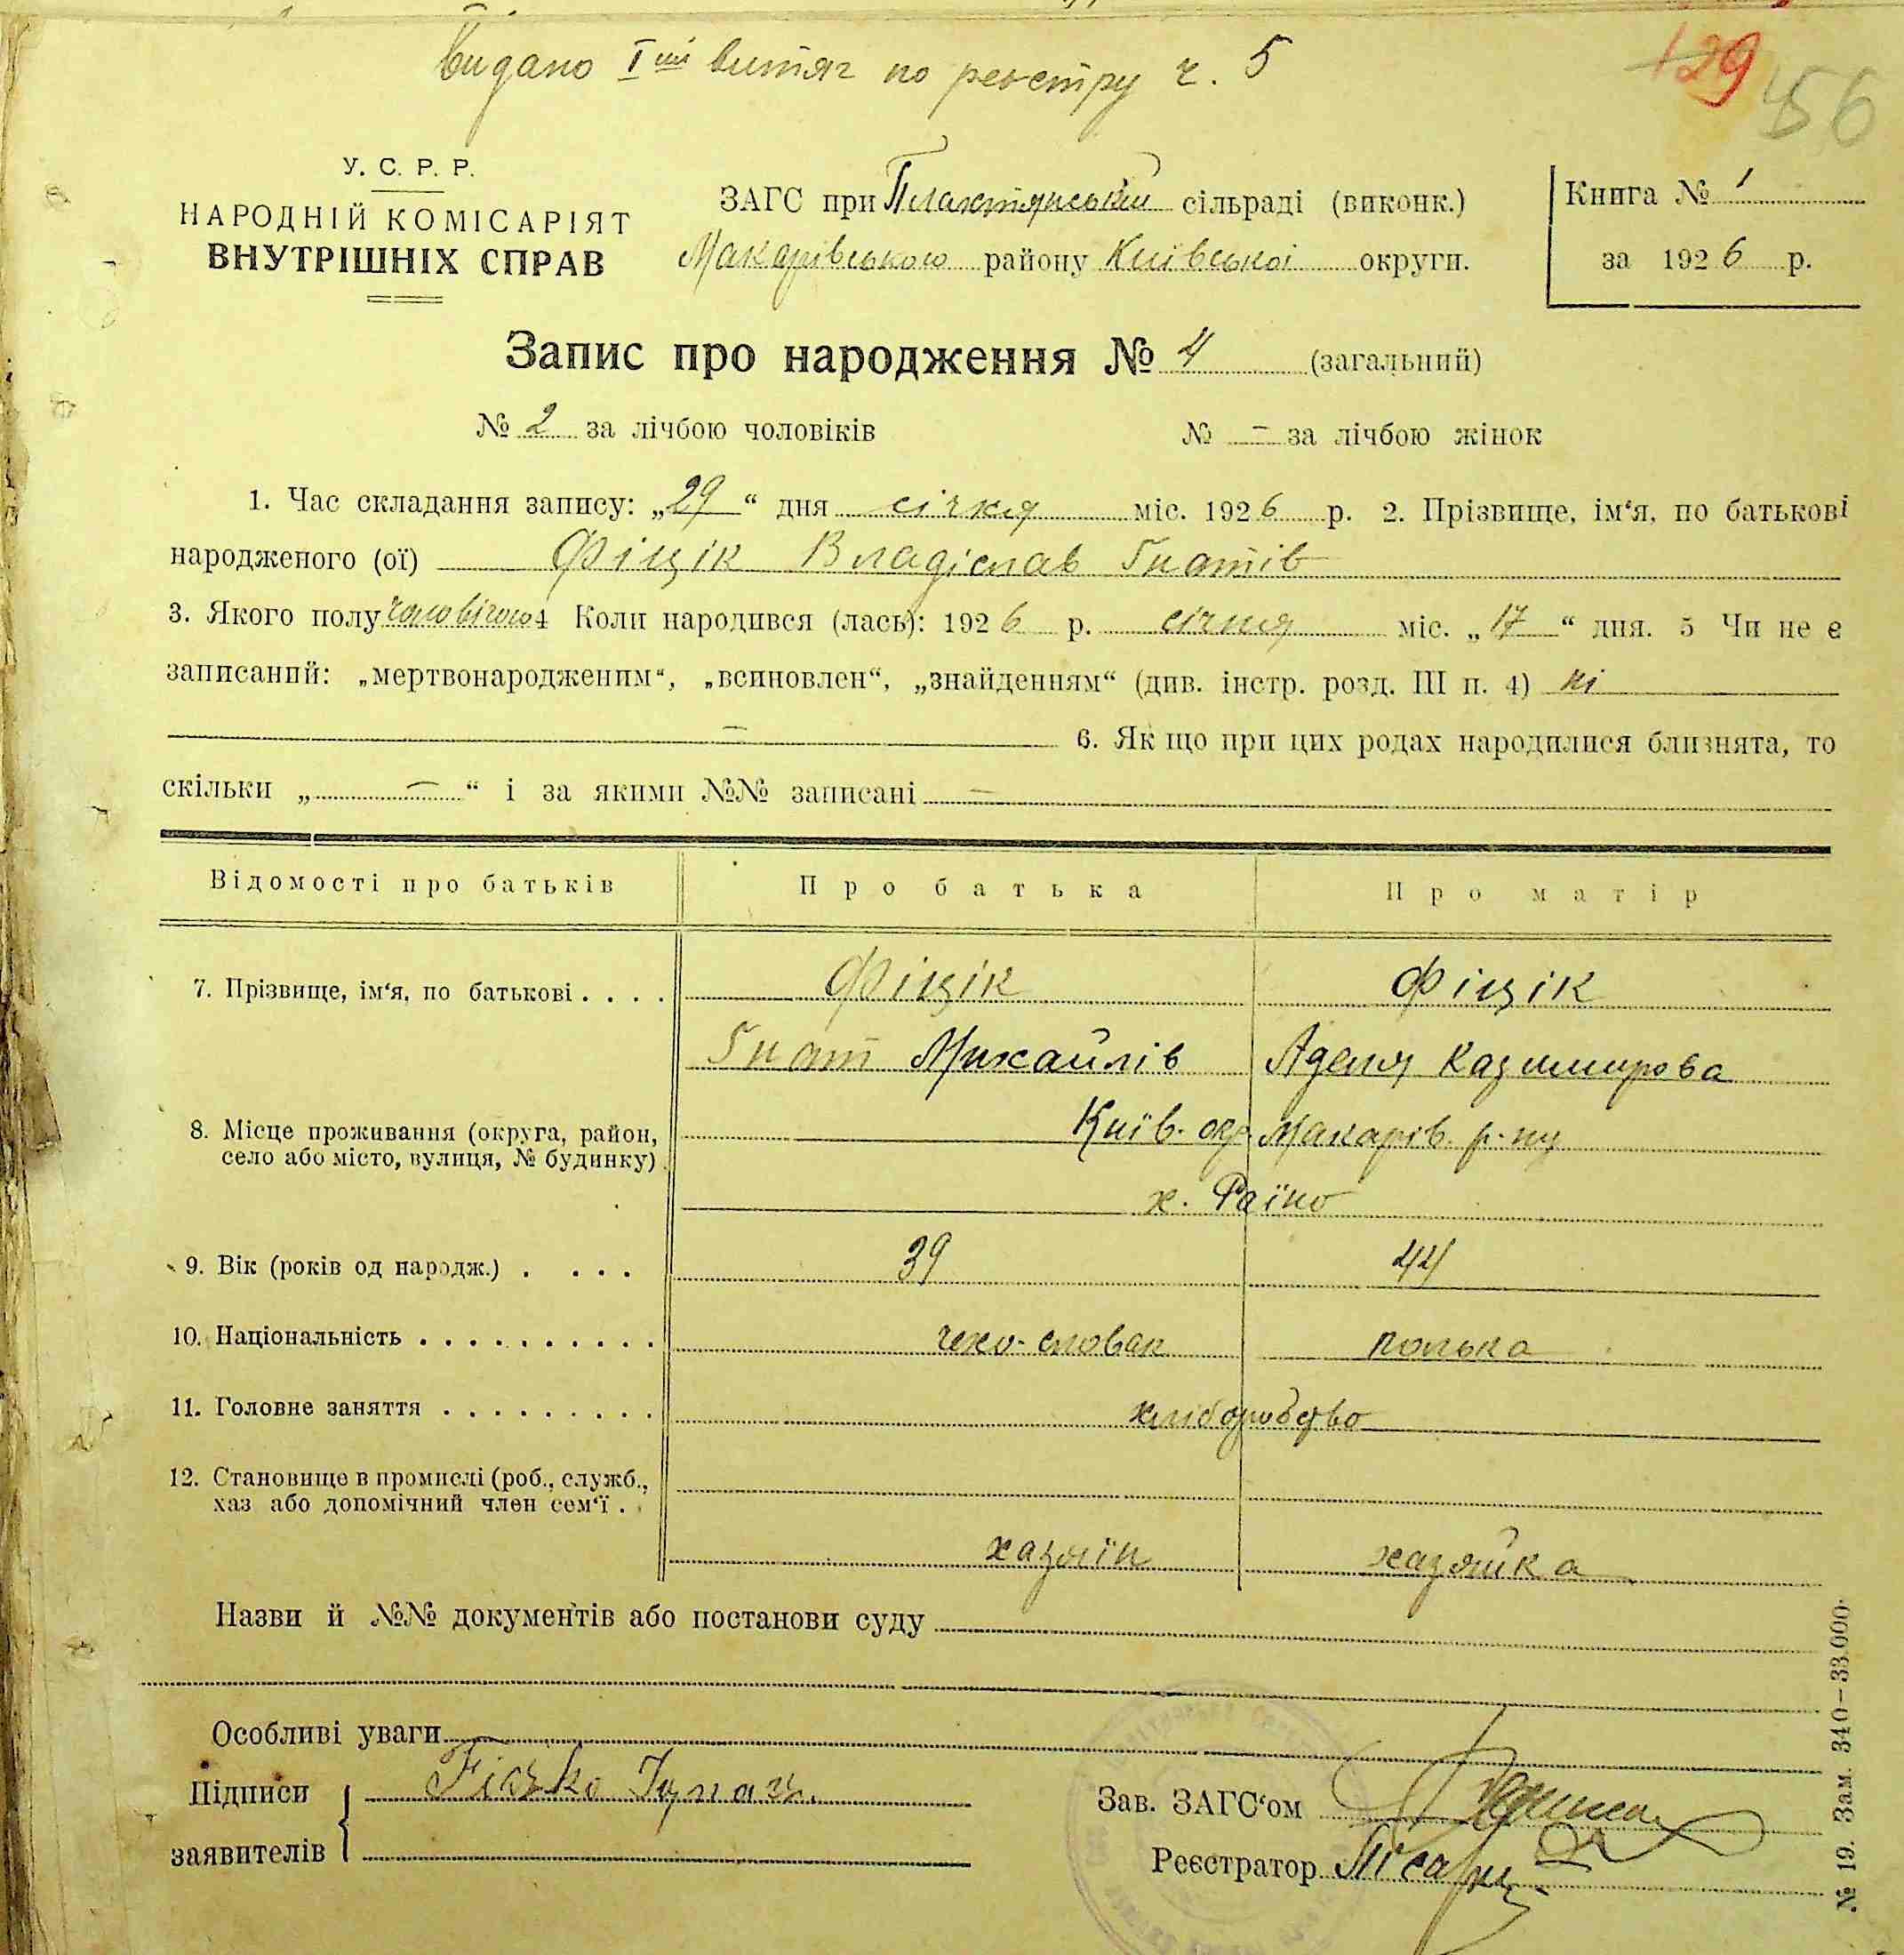 Видано Iший витяг по реєстру ч. 5
129 56
У. С. Р. Р.
НАРОДНІЙ КОМІСАРІЯТ
ВНУТРІШНІХ СПРАВ
ЗАГС при Плахтянській сільраді (виконк.)
Макарівського району Київської округи.
Книга № 1
за 1926 р.
Запис про народження № 4 (загальний)
№ 2 за лічбою чоловіків № - за лічбою жінок
1. Час складання запису: „29“ дня січня міс. 1926 р. 2. Прізвище, ім‘я, по батькові
народженого (ої) Фіцік Владіслав Гнатів
3. Якого полу чоловічого 4 Коли народився (лась): 1926 р. січня міс. „17“ дня. 5 Чи не є
записаний: „мертвонародженим“, „всиновлен“, „знайденням“ (див. інстр. розд. III п. 4) ні
— 6. Як що при цих родах народилися близнята, то
скільки „ — “ і за якими №№ записані —
Відомості про батьків Про батька Про матір
7. Прізвище, ім‘я, по батькові . . . . Фіцік Фіцік
Гнат Михайлів Аделя Казимирова
8. Місце проживання (округа, район, Київ. окр. Макарів. р-ну
село або місто, вулиця, № будинку) х. Раїно
9. Вік (років од народж.) . . . . 39 44
10. Національність . . . . . . . . . . чехо-словак полька
11. Головне заняття . . . . . . . . . хліборобство
12. Становище в промислі (роб., служб.,
хаз або допомічний член сем‘ї . . хазяїн хазяйка
Назви й №№ документів або постанови суду
Особливі уваги
Підписи
заявителів
Зав. ЗАГС‘ом
Реєстратор
№ 19. Зам. 340–33.000.